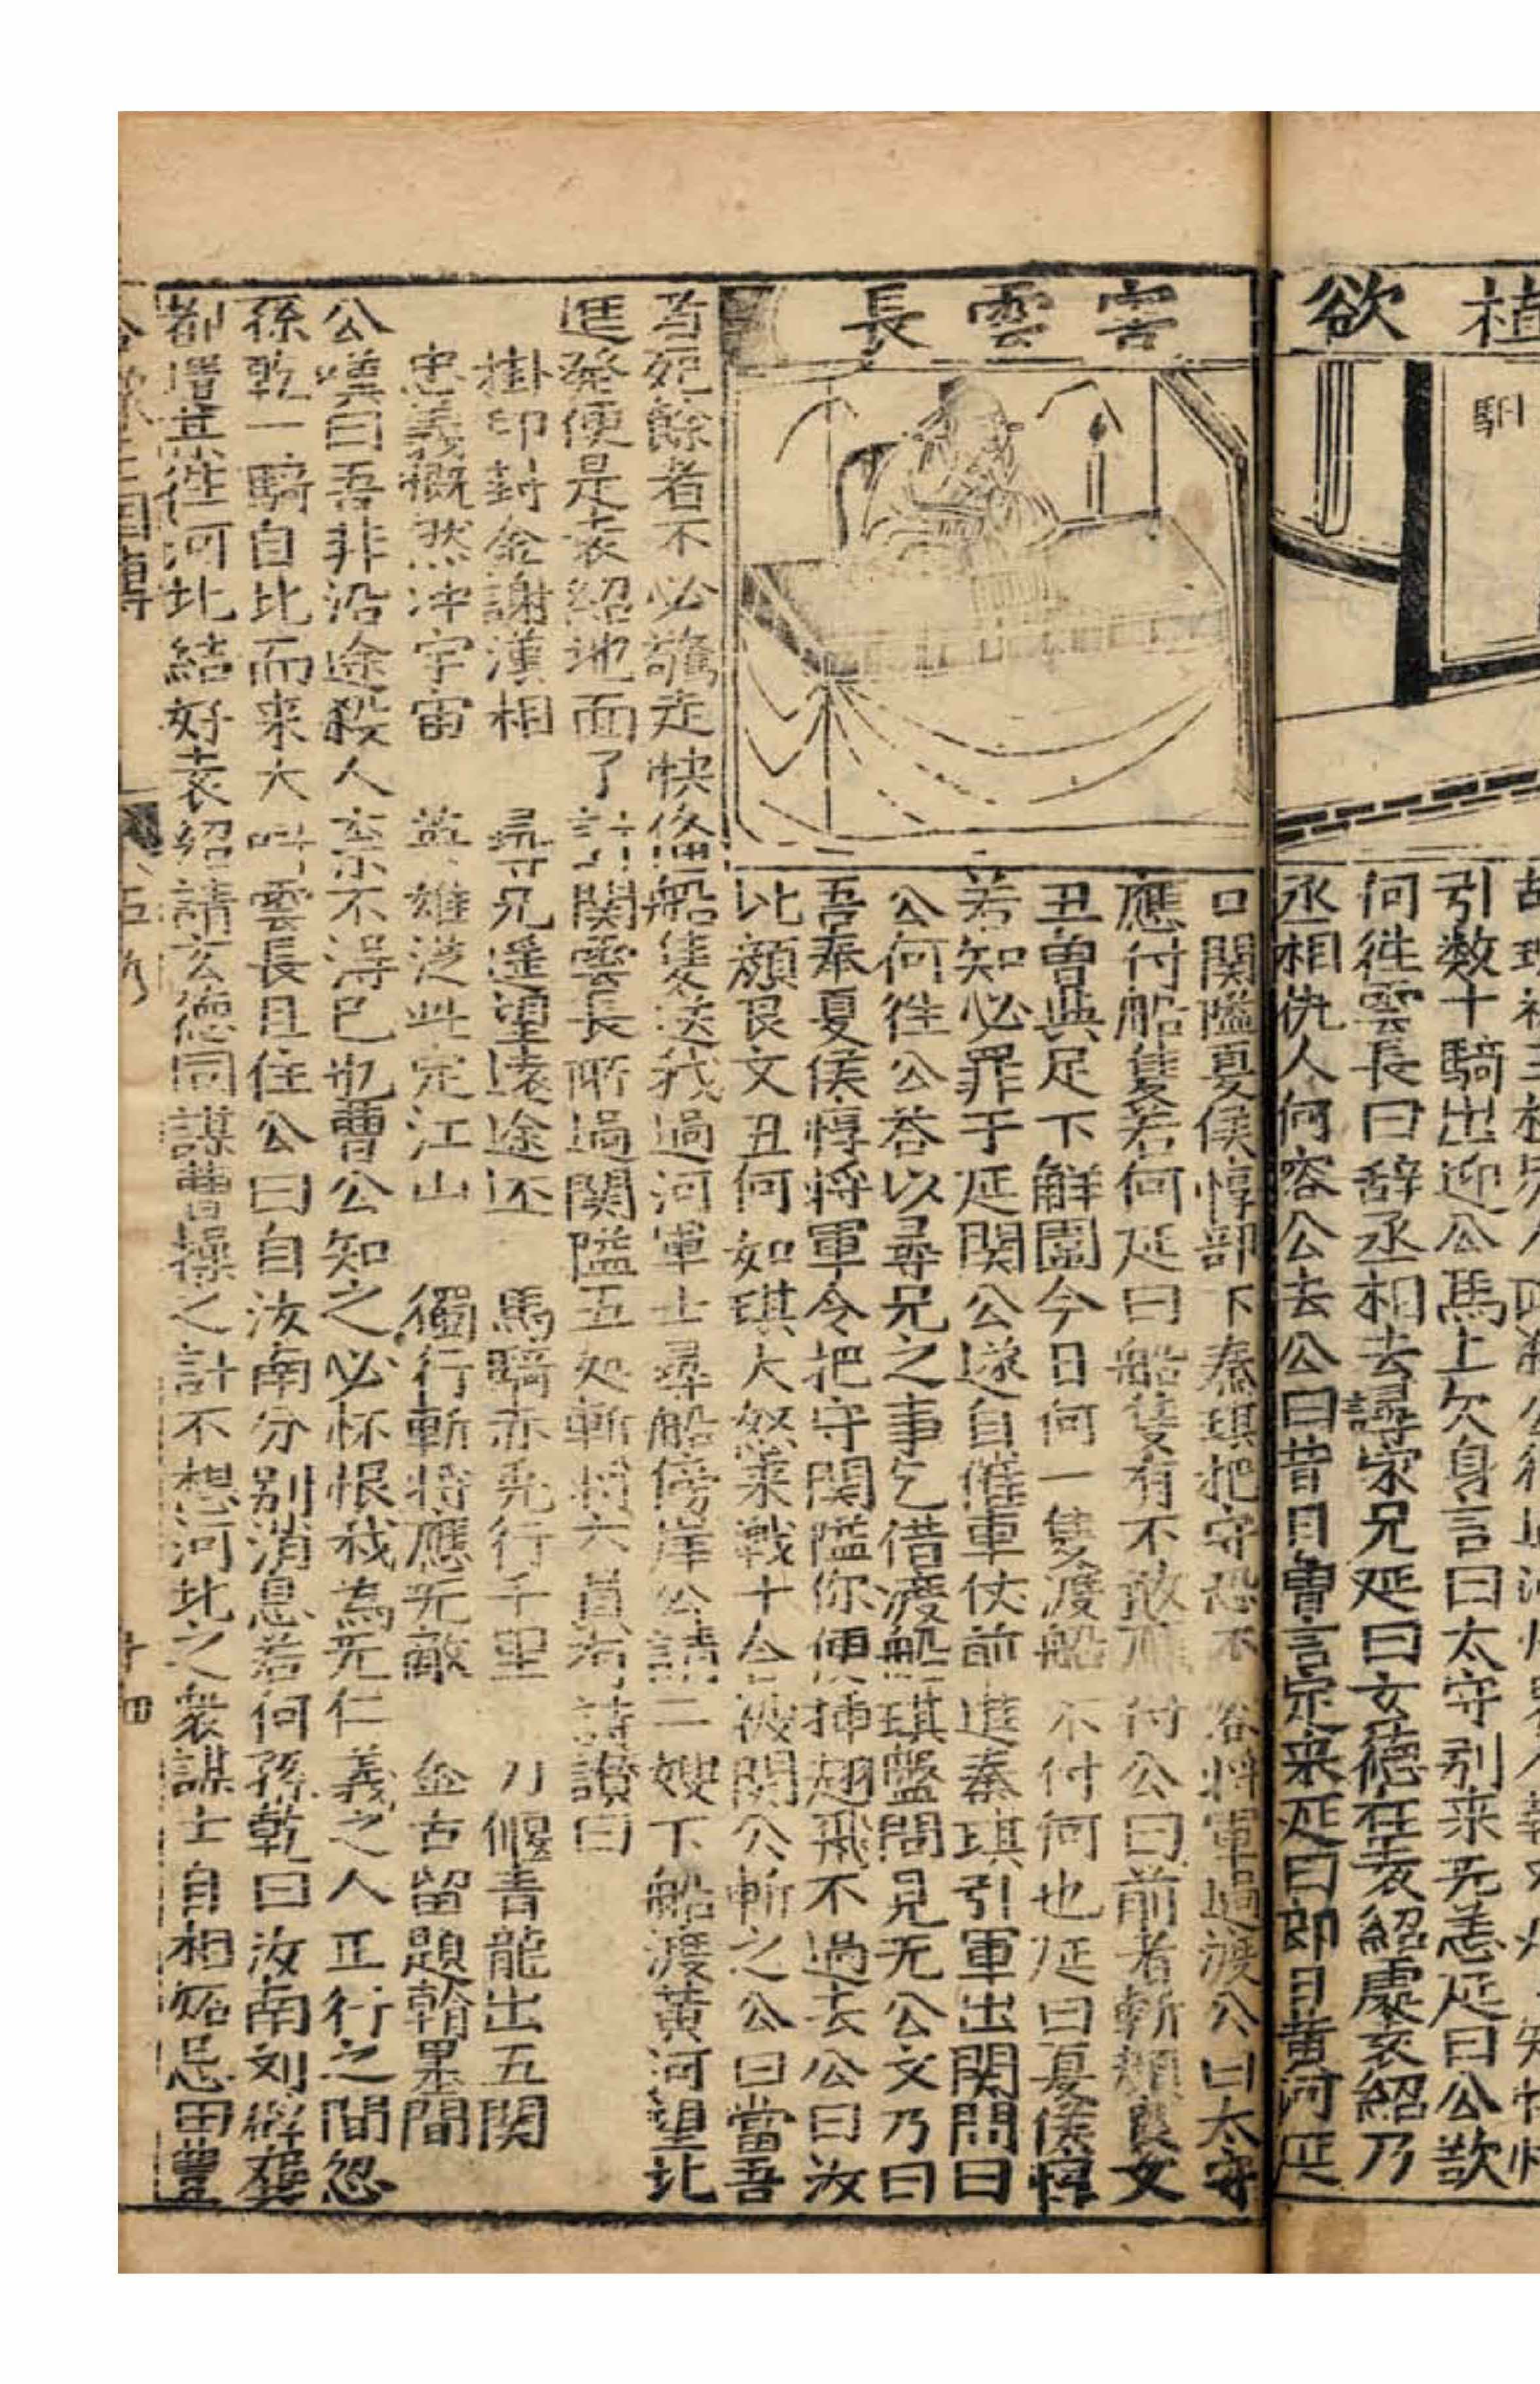 植欲
馹
引数十騎出迎公馬上欠身言曰太守别来无恙延曰公欲
何徃雲長曰辞丞相去尋家兄延曰玄德在袁紹處袁紹乃
丞相仇人何容公去公曰昔日曾言定来延曰即日黄河延
害雲長
口関隘夏侯惇部下秦琪把守恐不容将軍過渡公曰太守
應付船隻若何延曰船隻有不敢應付公曰前者斬顔良文
丑曾與足下觧圍今日何一隻渡船不付何也延曰夏侯惇
若知必罪于延関公遂自催車仗前進秦琪引軍出関問曰
公何徃公荅以尋兄之事乞借渡船琪盤問見无公文乃曰
吾奉夏侯惇将軍令把守関隘你便揷翅飛不過去公曰汝
比顔良文丑何如琪大怒来戰十合被関公斬之公曰當吾
者死餘者不必驚走快俻船隻送我過河軍士尋船傍岸公請二嫂下船渡黄河望北
進發便是袁紹地面了計関雲長所過関隘五处斬将六員有詩讃曰
掛印封金謝漢相　尋兄遥望遠途还　馬騎赤兎行千里　刀偃青龍出五関
忠義慨然冲宇宙　英雄従此定江山　獨行斬将應无敵　金古留題翰墨間
公嘆曰吾非沿途殺人柰不得已也曹公知之必怀恨我為无仁義之人正行之間忽
孫乾一騎自北而来大叫雲長且住公曰自汝南分别消息若何孫乾曰汝南刘辟龔
都㬱某徃河北結好袁紹請玄德同謀曹操之計不想河北之衆謀士自相妬忌田豊
三国傳